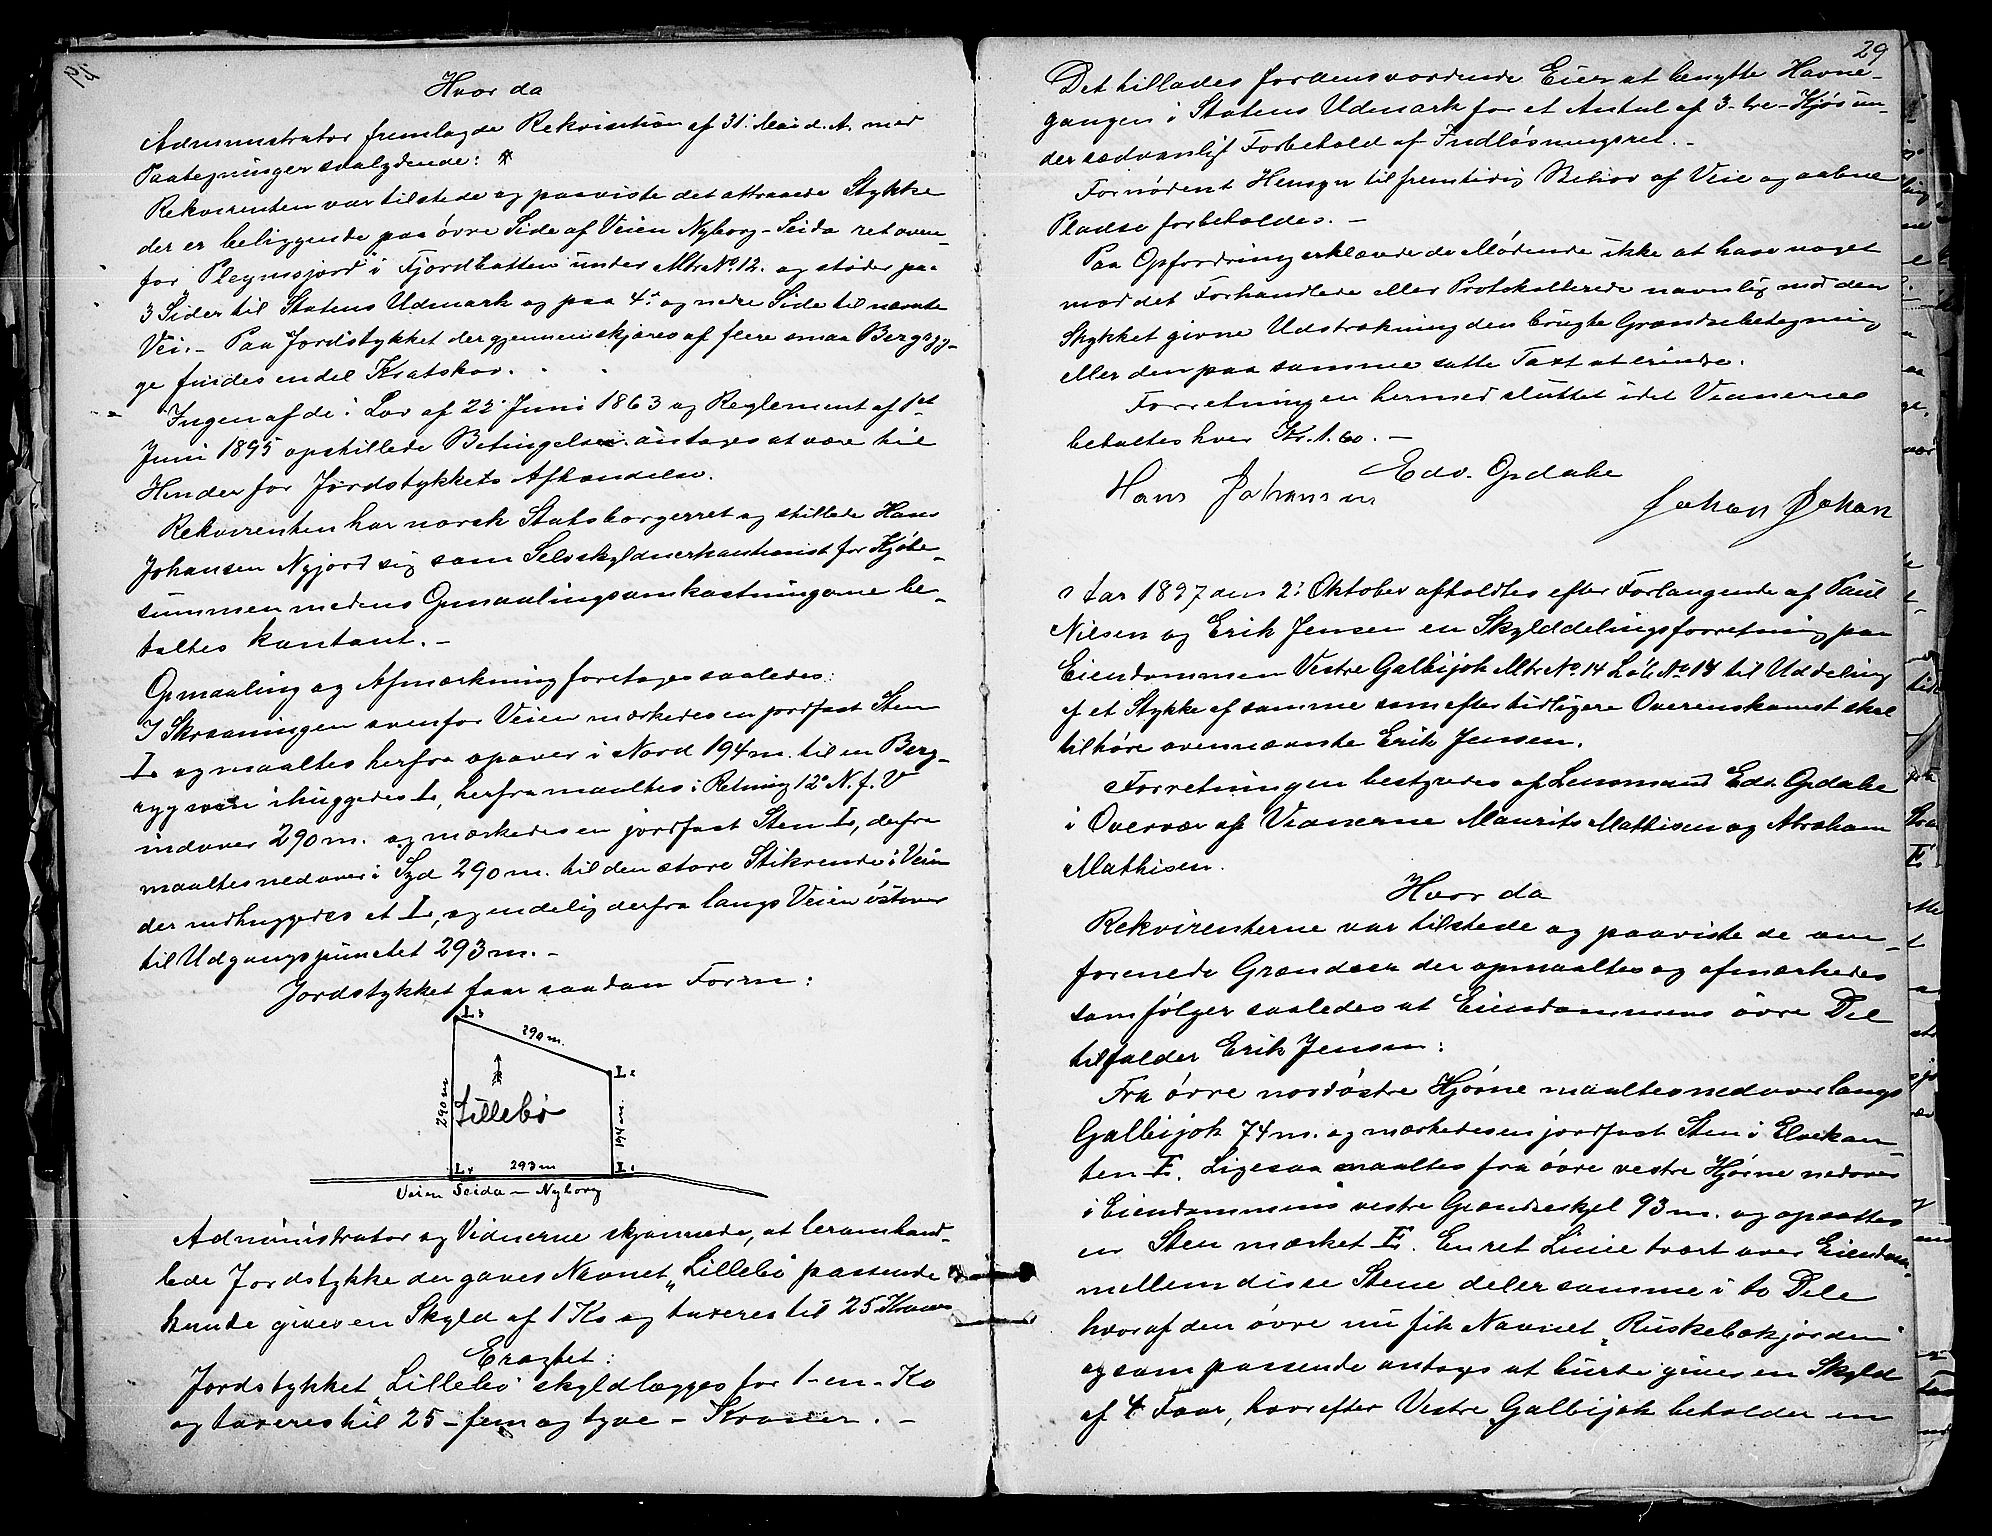 Hvor da
Administrator fremlagde Rekvisition af 31' Mai d. A. med
Paategninger saalydende:
Rekvirenten var tilstede og paaviste det attraaede Stykke
der er beliggende paa övre Side af Veien Nyborg-Seida ret oven-
for i Fjordbotten under Mtr No. 12. og støder paa
3 Sider til Statens Udmark og paa 4' og nedre Side til nævnte
Vei. - Paa Jordstykket der gjennemskjæres af flere smaa Bergryg-
ge findes endel Kratskov.
Ingen af de i Lov af 22' Juni 1863 og Reglement af 1st
Juni 1895 opstillede Betingelser antages at være til
Hinder for Jordstykkets Afhændelse.
Rekvirenten har norsk Statsborgerret og stillede Hans
Johansen Nyjord sig som Selvskyldnerkautionist for Kjöbe-
summen medens Opmaalingsomkostningerne be-
taltes kontant. -
Opmaaling og Afmærkning foretoges saaledes:
I Skraaningen ovenfor Veien mærkedes en jordfast Sten
I1 og maaltes herfra opover i Nord 194 m. til en Berg-
ryg hvori ihuggedes I2, herfra maaltes i Retning 12° N. f. V
indover 290 m. og mærkedes en jordfast Sten I3, derfra
maaltes nedover i Syd 290 m. til den store Stikrende i Veien
der indhuggedes et I4, og endelig derfra langs Veien östover
til Udgangspunctet 293 m. -
Jordstykket faar saadan Form:
I3
290 m.
I2
290 m
Lillebö
194 m.
I4
293 m
I1
Veien Seida - Nyborg
Administrator og Vidnerne skjønnede, at omhand-
lede Jordstykke der gaves Navnet "Lillebö" passende
kunde gives en Skyld af 1 Ko og taxeres til 25 Kroner
Eragtet:
Jordstykket "Lillebö" skyldlægges for 1-en-Ko
og taxeres til 25-fem og tyve-Kroner. -
29
Det tillades Jordens vordende Eier at benytte Havne-
gangen i Statens Udmark for et Antal af 3-tre-Kjør un-
der sædvanligt Forbehold af Indløsningsret. -
Fornødent Hensyn til fremtidig Behov af Veie og aabne
Pladse forbeholdes. -
Paa Opfordring erklærede de Mødende ikke at have noget
mod det Forhandlede eller Protokollerede navnlig mod den
Stykket givne Udstrækning den brugte Grændsebetegning
eller den paa samme satte Taxt at erindre.
Forretningen hermed sluttet idet Vidnerne
betaltes hver Kr. 1.60. -
Edv. Opdahl
Hans Johansen
Johan Johan
Aar 1897 den 2' Oktober afholdtes efter Forlangende af Paul
Nilsen og Erik Jensen en Skylddelingsforretning paa
Eiendommen Vestre Galbijok Mtr No 14 Løb No 14 til Uddeling
af et Stykke af samme som efter tidligere Overenskomst skal
tilhøre ovennævnte Erik Jensen.
Forretningen bestyredes af Lensmand Edv. Opdahl
i Overvær af Vidnerne Maurits Mathisen og Abraham
Mathisen.
Hvor da
Rekvirenterne var tilstede og paaviste de om-
forenede Grændser der opmaaltes og afmærkedes
som følger saaledes at Eiendommens övre Del
tilfalder Erik Jensen:
Fra övre nordöstre Hjörne maaltes nedover langs
Galbijok 74 m. og mærkedes en jordfast Sten i Elvekan-
ten E. Ligesaa maaltes fra övre vestre Hjørne nedover
i Eiendommens vestre Grændseskjel 93 m. og opsattes
en Sten mærket E. En ret Linie tvært over Eiendom.
mellem disse Stene deler samme i to Dele
hvoraf den övre nu fik Navnet "Ruskebækjorden"
og som passende antoges at burde gives en Skyld
af 4 Faar, hvorefter Vestre Galbijok beholder en